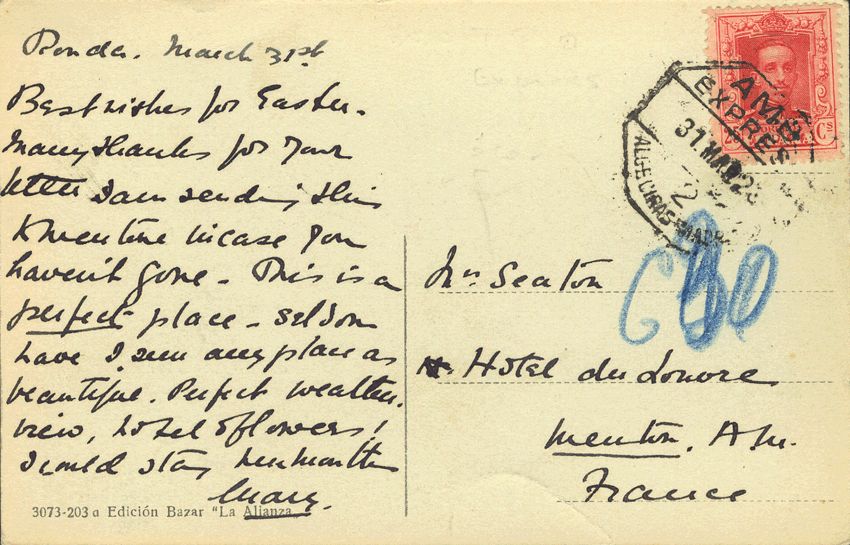 Ronda. March 31st
Best wishes for Easter.
Many thanks for your
letter I am sending this
to Mentone in case you
haven't gone - This is a
perfect place - seldom
have I seen any place as
beautiful. Perfect weather,
view, hotel & flowers!
I could stay here months
Mary.
3073-203 a Edición Bazar "La Alianza
AMB
EXPRES
31 MAR 2
ALGECIRAS-MADR
25 Cs
Mrs Seaton
Hotel du Louvre
Menton. A.M.
France